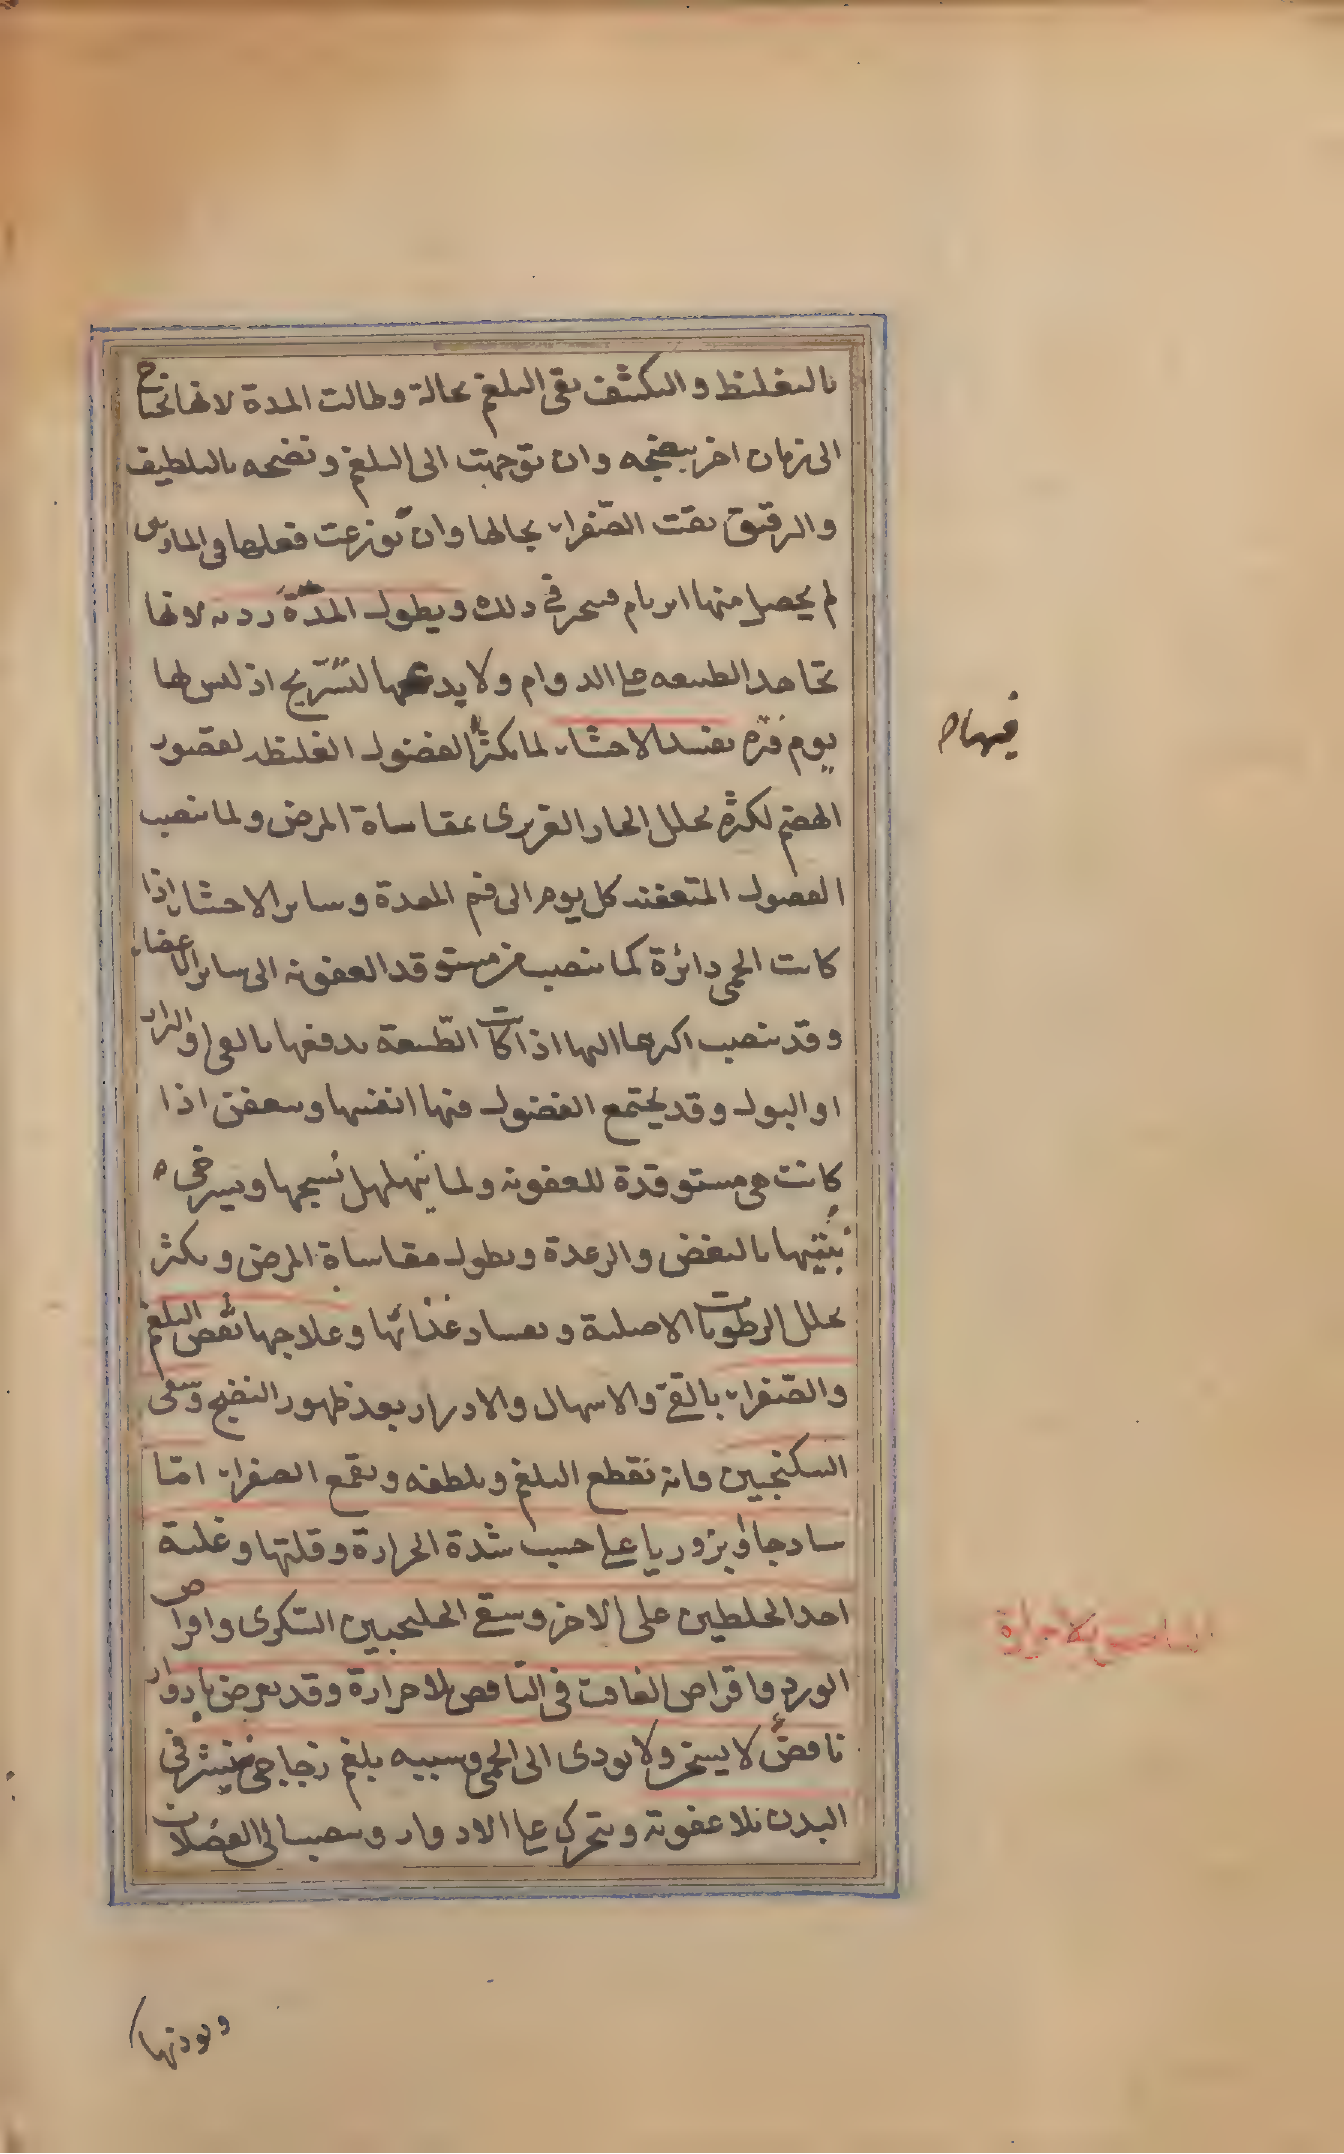 بالتغليظ والتكثيف بقى البلغم بحاله وطالت المدة لانها تحتاج
الى زمان اخر بنضجه وان توجهت الى البلغم ونضجه بالتلطيف
والترقيق بقت الصفراء بحالها وان توزعت فعلها فى المادتين
لم يحصل منها فى ذلك ويطول المدة ردية لانها
تجاهد الطبيعه على الدوام ولا يدعها لتستريح اذ ليس لها
يوم فترة يفسد الاحشاء لما يكثر الفضول الغليظه لقصور
الهضم لكثرة تحلل الحار الغريزى بمقاساة المرض ولما تنصب
الفضول المتعفنه كل يوم الى فم المعدة وساير الاحشاء اذا
كانت الحمى دائرة كما تنصب من مستوقد العفونه الى ساير الاعضاء
وقد تنصب اكثرها اليها اذا كانت الطبيعة يدفعها بالقى او البراز
او البول وقد يجتمع الفضول فيها انفسها ويتعفن اذا
كانت هى مستوقدة للعفونه ولما يتهلهل نسجها ويسترخى
بنيتها بالنفض والرعدة وبطول مقاساة المرض وبكثرة
تحلل الرطوبات الاصلية وبفساد غذائها وعلاجها نقص البلغم
والصفراء بالقئ والاسهال والادرار بعد ظهور النضج وسقى
السكنجبين فانه يقطع البلغم ويلطفه ويقمع الصفراء امّا
ساذجا او بزوريا على حسب شدة الحرارة وقلتها وغلبة
احد الخلطين على الاخر وسقى الجلنجبين السّكرى واقراص
الورد واقراص الغافت فى النافض بلا حرارة وقد يعرض بادوار
نافض لا يسخن ولا يودى الى الحمى وسببه بلغم زجاجى ينتشر فى
البدن بلا عفونة ويتحرك على الادوار وينصب الى العضلات
فيها
النافض بلا حرارة